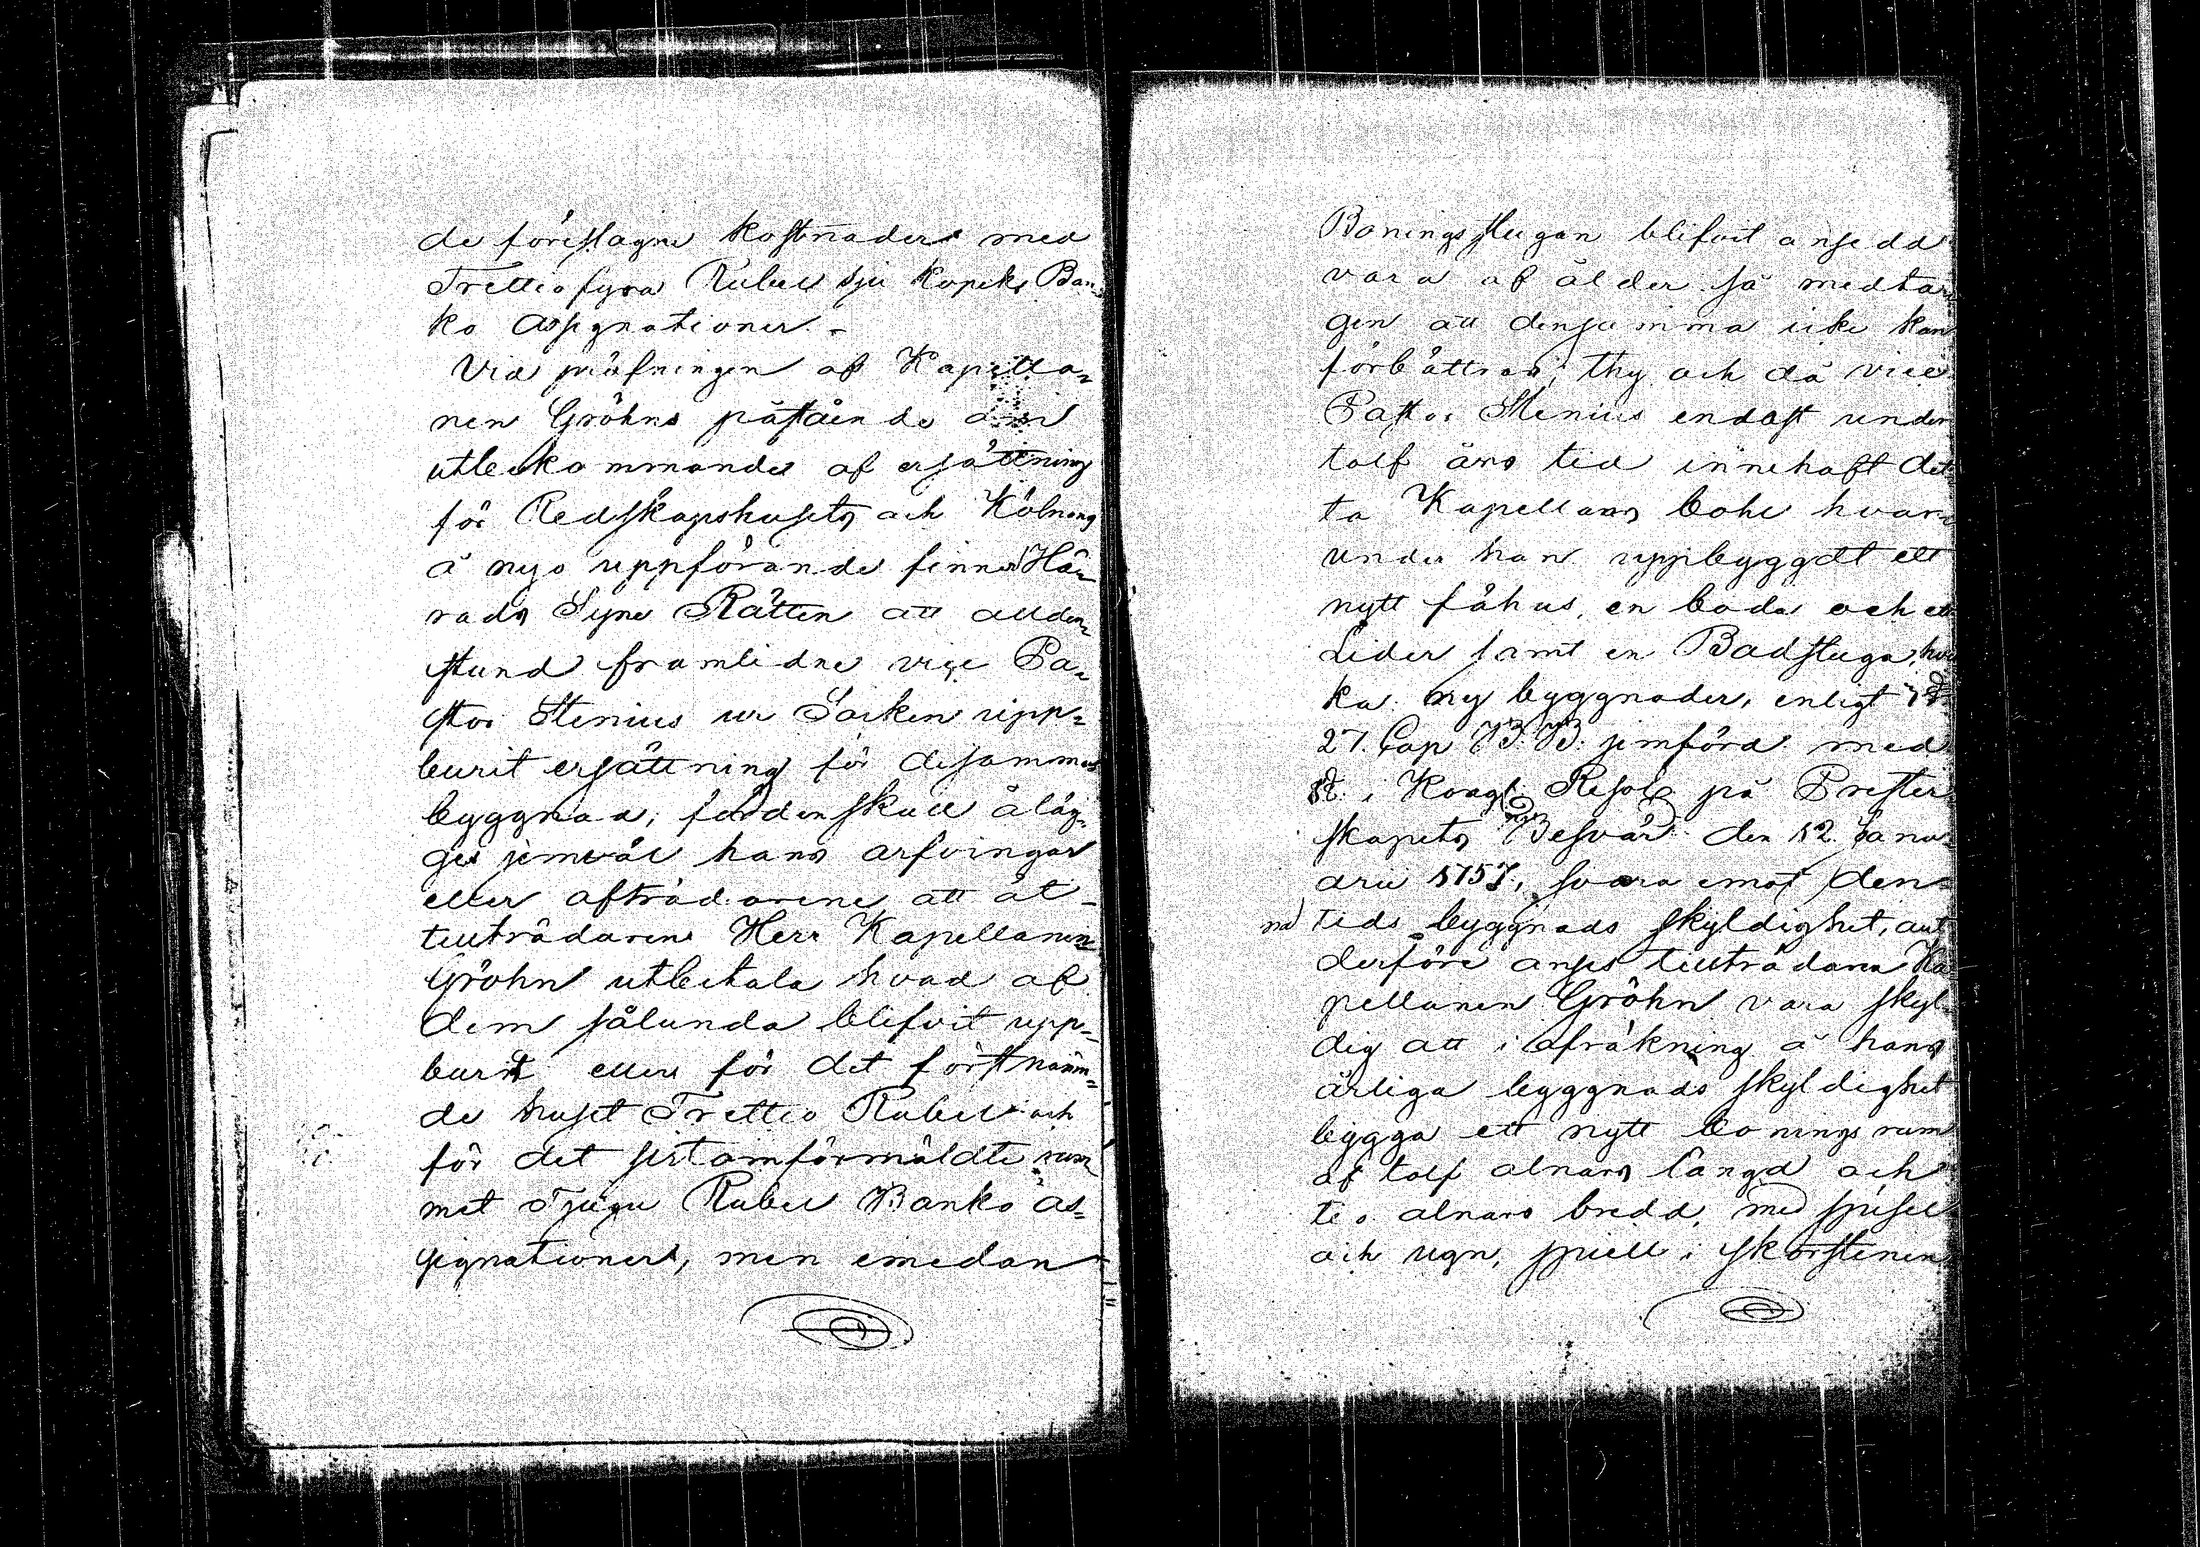 de föreslagne kostnader med
Trettiofyra Rubel sju kopek Ban¬
ko Assignationer.
Vid pröfningen af Kapella¬
nen Gröhns påstående om
utbekommande af ersättning
för Redskapshusets och Kölnans
å nyo uppförande finner Hä¬
rads Syne Rätten att allden¬
stund framlidne vice Pa¬
stor Stenius ur Socken upp¬
burit ersättning för desamma
byggnad, fördenskull åläg¬
ges jemväl hans arfvingar
eller afträdarene att åt
tillträdarene Herr Kapellanen
Gröhn utbetala hvad af
dem sålunda blifvit upp¬
burit eller för det förstnämn¬
de huset Trettio Rubel och
för det sistomförmäldte rum¬
met Tjugu Rubel Banko As¬
signationer, men emedan
Boningsstugan blifvit ansedd
vara af ålder så medta¬
gen att densamma icke kan
förbättras; thy och då vice
Pastor Stenius endast under
tolf års tid innehaft det¬
ta Kapellans bohl hvar¬
under han uppbyggdt ett
nytt fähus, en boda och ett
Lider samt en Badstuga, hvil
ka ny byggnader, enligt
27. Cap B. B. jemförd med
18. i Kongl Resol på Prester
skapets Besvär den 12 Janu¬
arii 1757, svara emot den¬
nes tids byggnads skyldighet, alt
derföre anses tillträdaren Ka
pellanen Gröhn vara skyl¬
dig att i afräkning å hans
årliga byggnads skyldighet
bygga ett nytt bonings rum
af tolf alnars längd och
tio alnars bredd, med spisel
och ugn, spiell i skorstenen